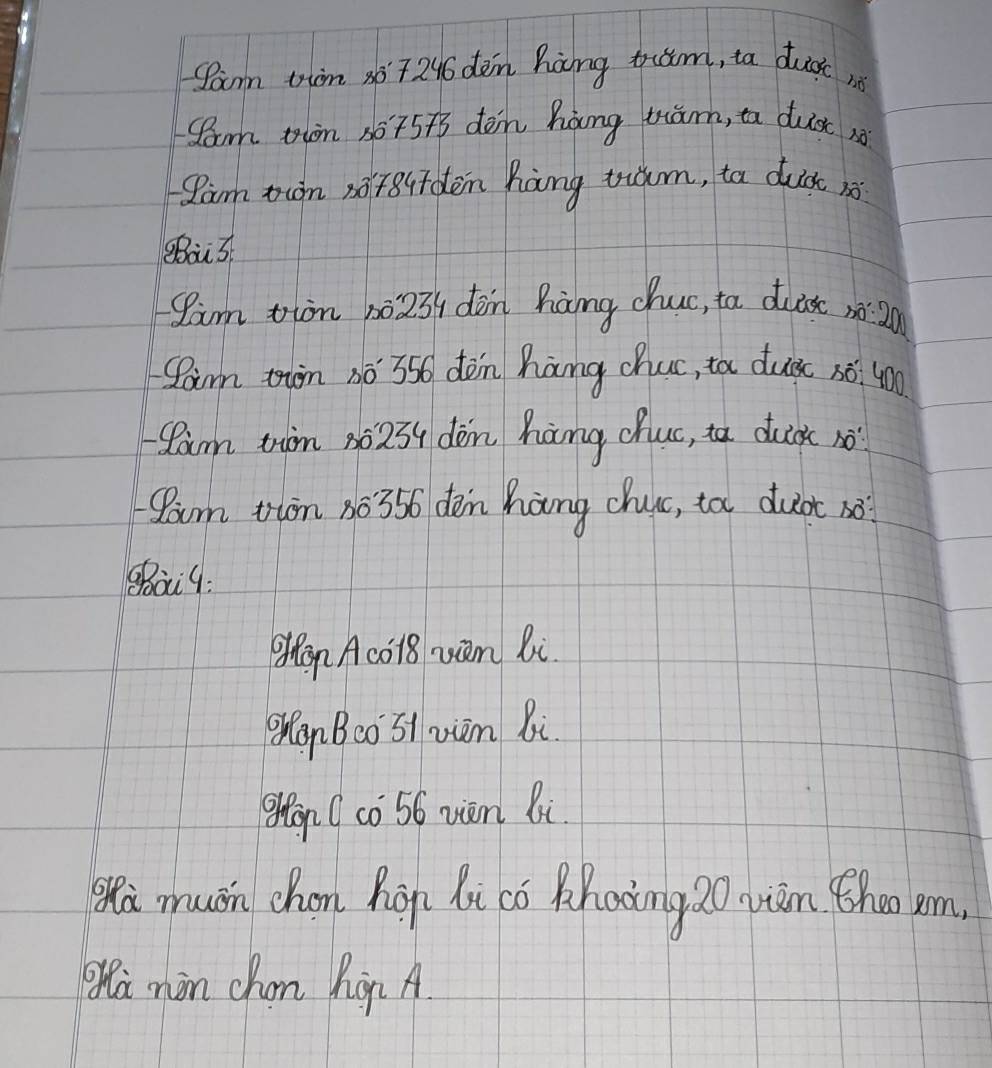 -Làm tròn số 7246 đến hàng trăm, ta được số
-Làm tròn số 7573 đến hàng trăm, ta được số:
-Làm tròn số 7847 đến hàng trăm, ta được số:
Bài 3
-Làm tròn số 234 đến hàng chục, ta được số: 200
-Làm tròn số 356 đến hàng chục, ta được số: 400
-Làm tròn số 234 đến hàng chục, ta được số:
-Làm tròn số 356 đến hàng chục, ta được số:
Bài 4:
Hộp A có 18 viên bi.
Hộp B có 51 viên bi.
Hộp C có 56 viên bi.
Hà muốn chọn hộp bi có khoảng 20 viên. Theo em,
Hà nên chọn hộp A.